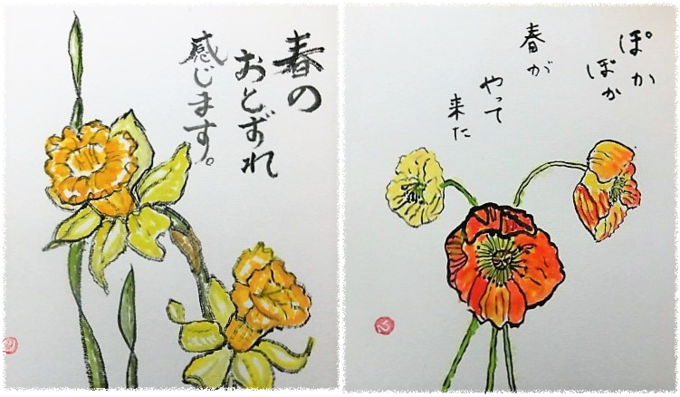 春の
おとずれ
感じます。
ぽか
ぽか
春が
やって
来た